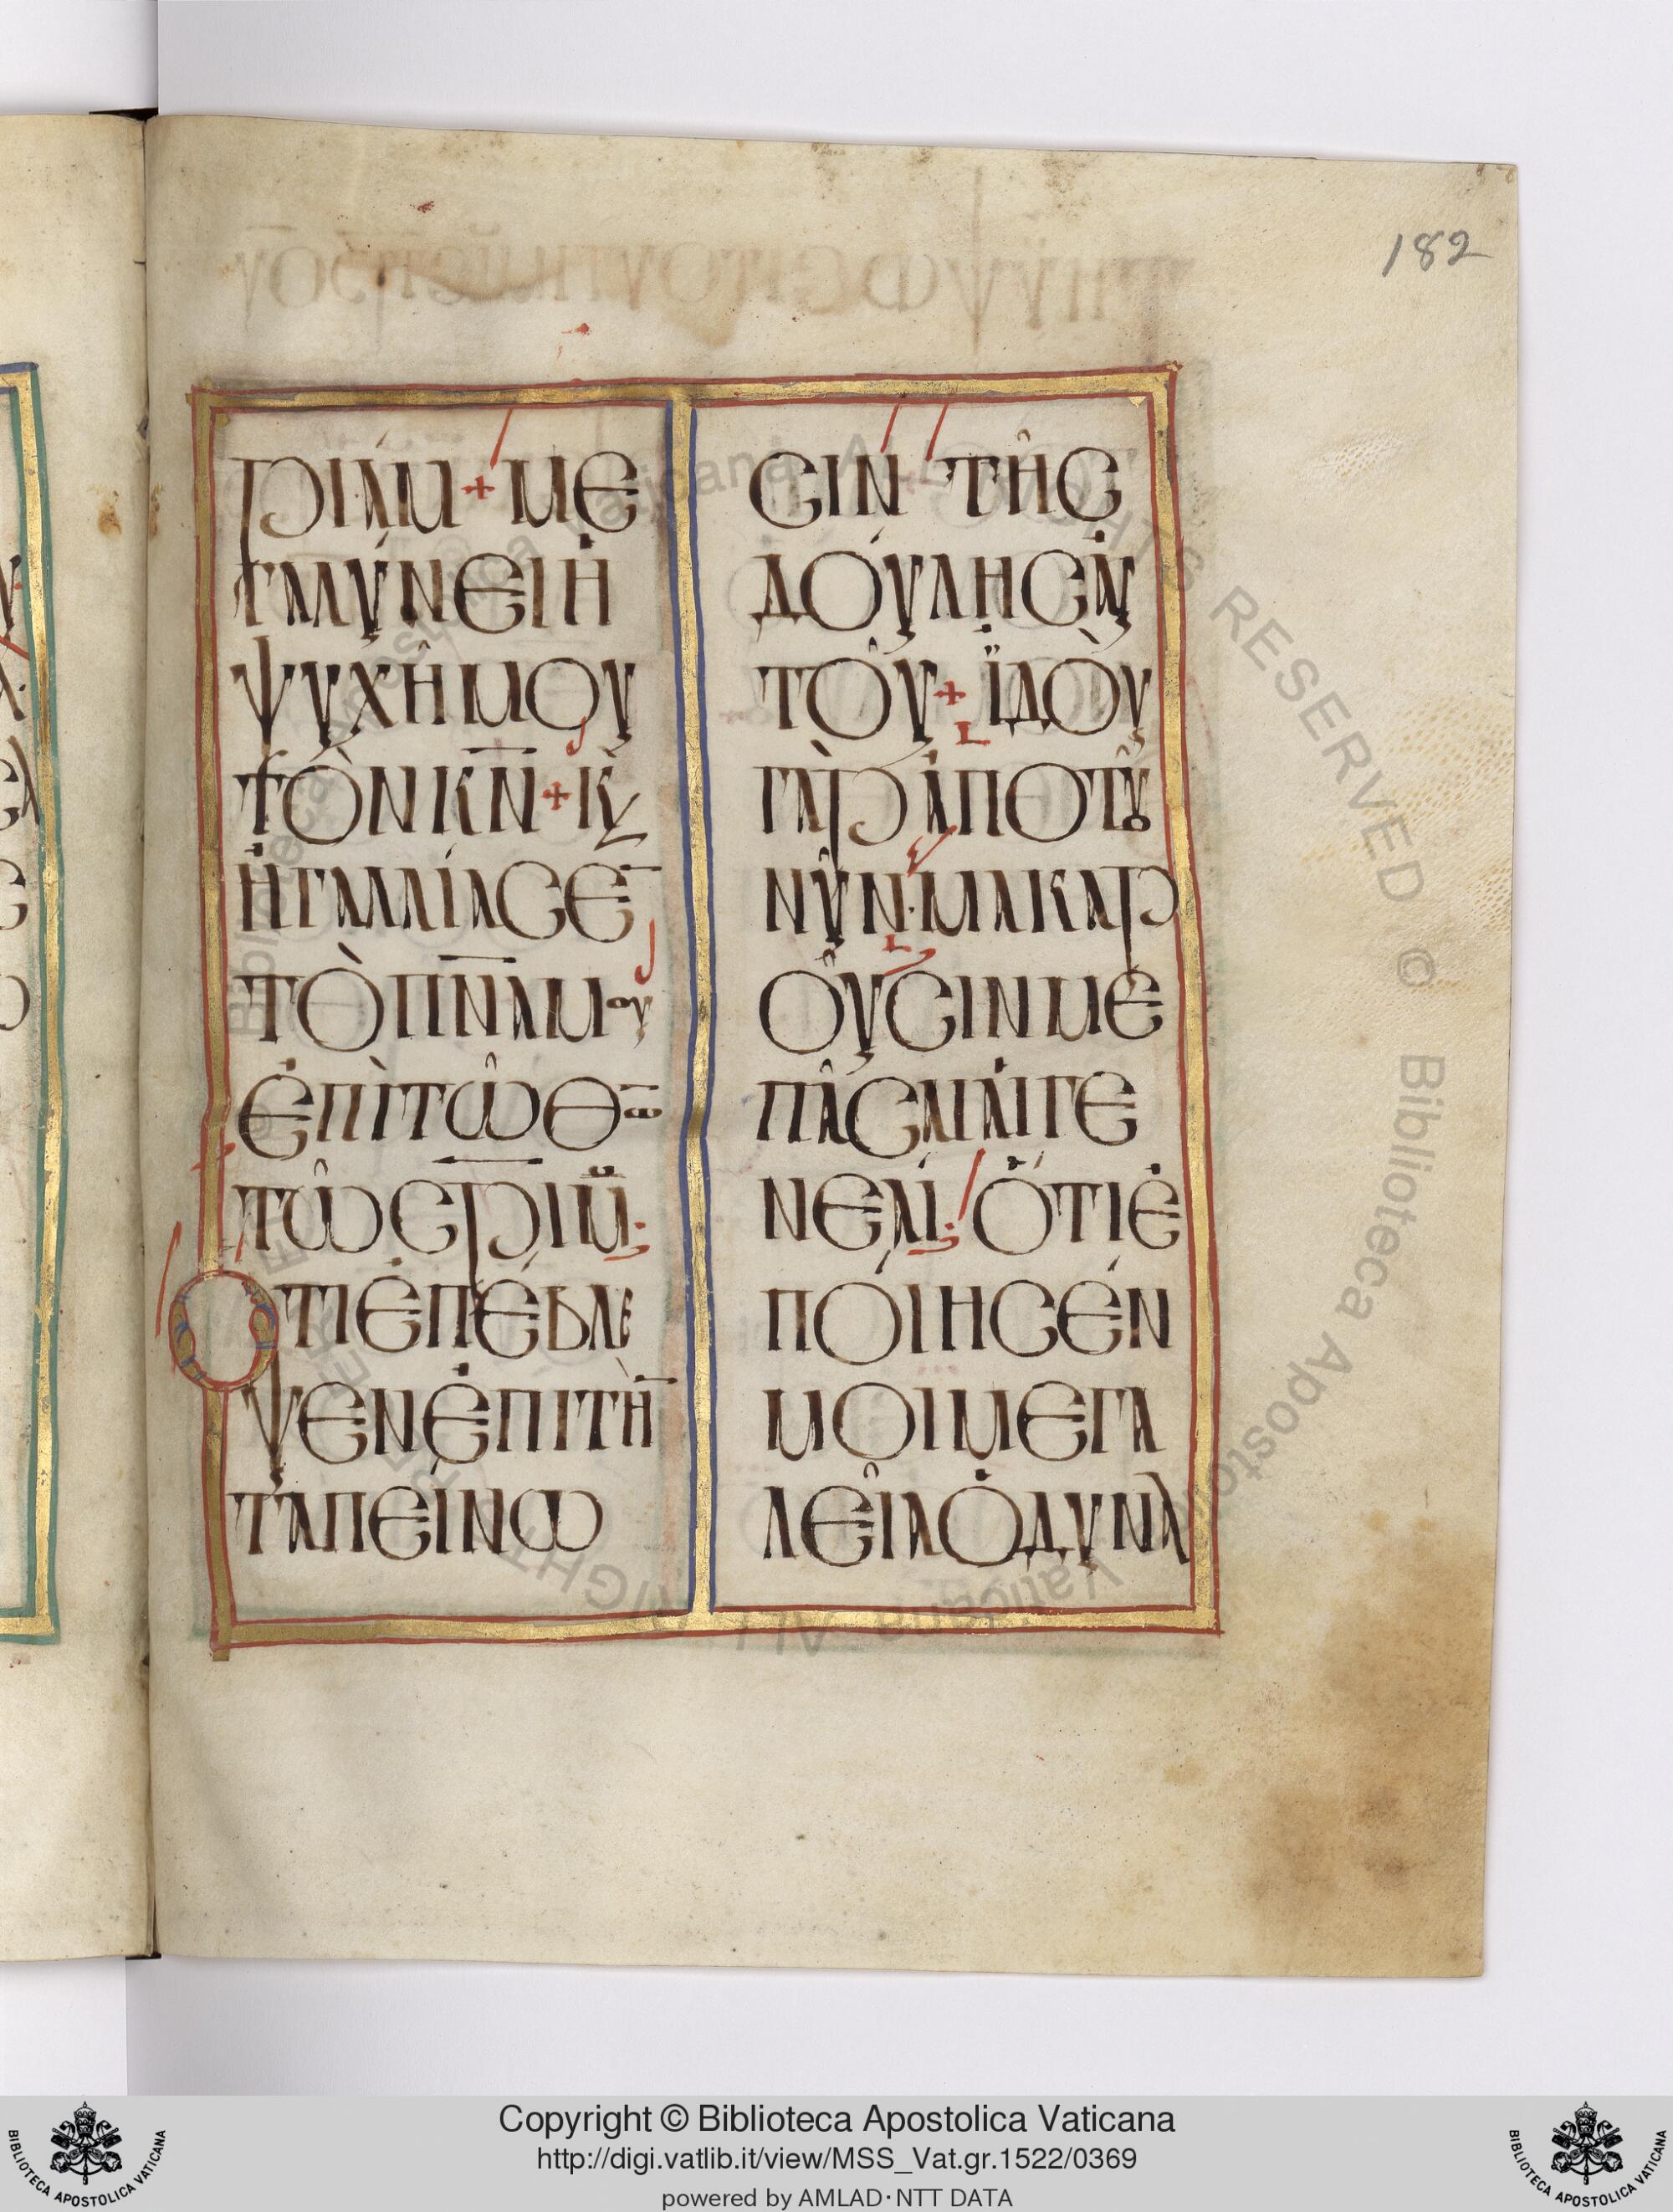 182
ΡΙΆΜ + ΜΕ
ΓΑΛΎΝΕΙ Ἡ
ΨΥΧΗ͂ ΜΟΥ
ΤῸΝ ΚΝ̅ + Κ̀
ἨΓΑΛΛΊΑΣΕ̅
ΤῸ ΠΝ̅Α ΜΟΥ
ἘΠῚ ΤΩ͂ ΘΩ̅
ΤΩ͂ Σ̅Ρ̅Ι̅ Μ
ΟΤΙ ἘΠΈΒΛΕ
ΨΕΝ ἘΠΙ ΤῊ̅
ΤΑΠΕΊΝΩ
ΣΙΝ ΤΗ͂Σ
ΔΟΎΛΗΣ ἈΥ
ΤΟΥ͂ + ἸΔΟῪ
ΓᾺΡ ἈΠΟ ΤΟΥ͂
ΝΥ͂Ν· ΜΑΚΑΡ
ΟΥ͂ΣΙΝ ΜΕ
ΠΑ͂ΣΑΙ ἈΙ ΓΕ
ΝΕΑΊ· ὍΤΙ Ἐ
ΠΌΙΗΣΈΝ
ΜΟΙ ΜΕΓΑ
ΛΕΙ͂Α Ὁ ΔΥΝΑ
Biblioteca Apostolica Vaticana ALL RIGHTS RESERVED ©
Copyright © Biblioteca Apostolica Vaticana
http://digi.vatlib.it/view/MSS_Vat.gr.1522/0369
powered by AMLAD·NTT DATA
BIBLIOTECA APOSTOLICA VATICANA
BIBLIOTECA APOSTOLICA VATICANA